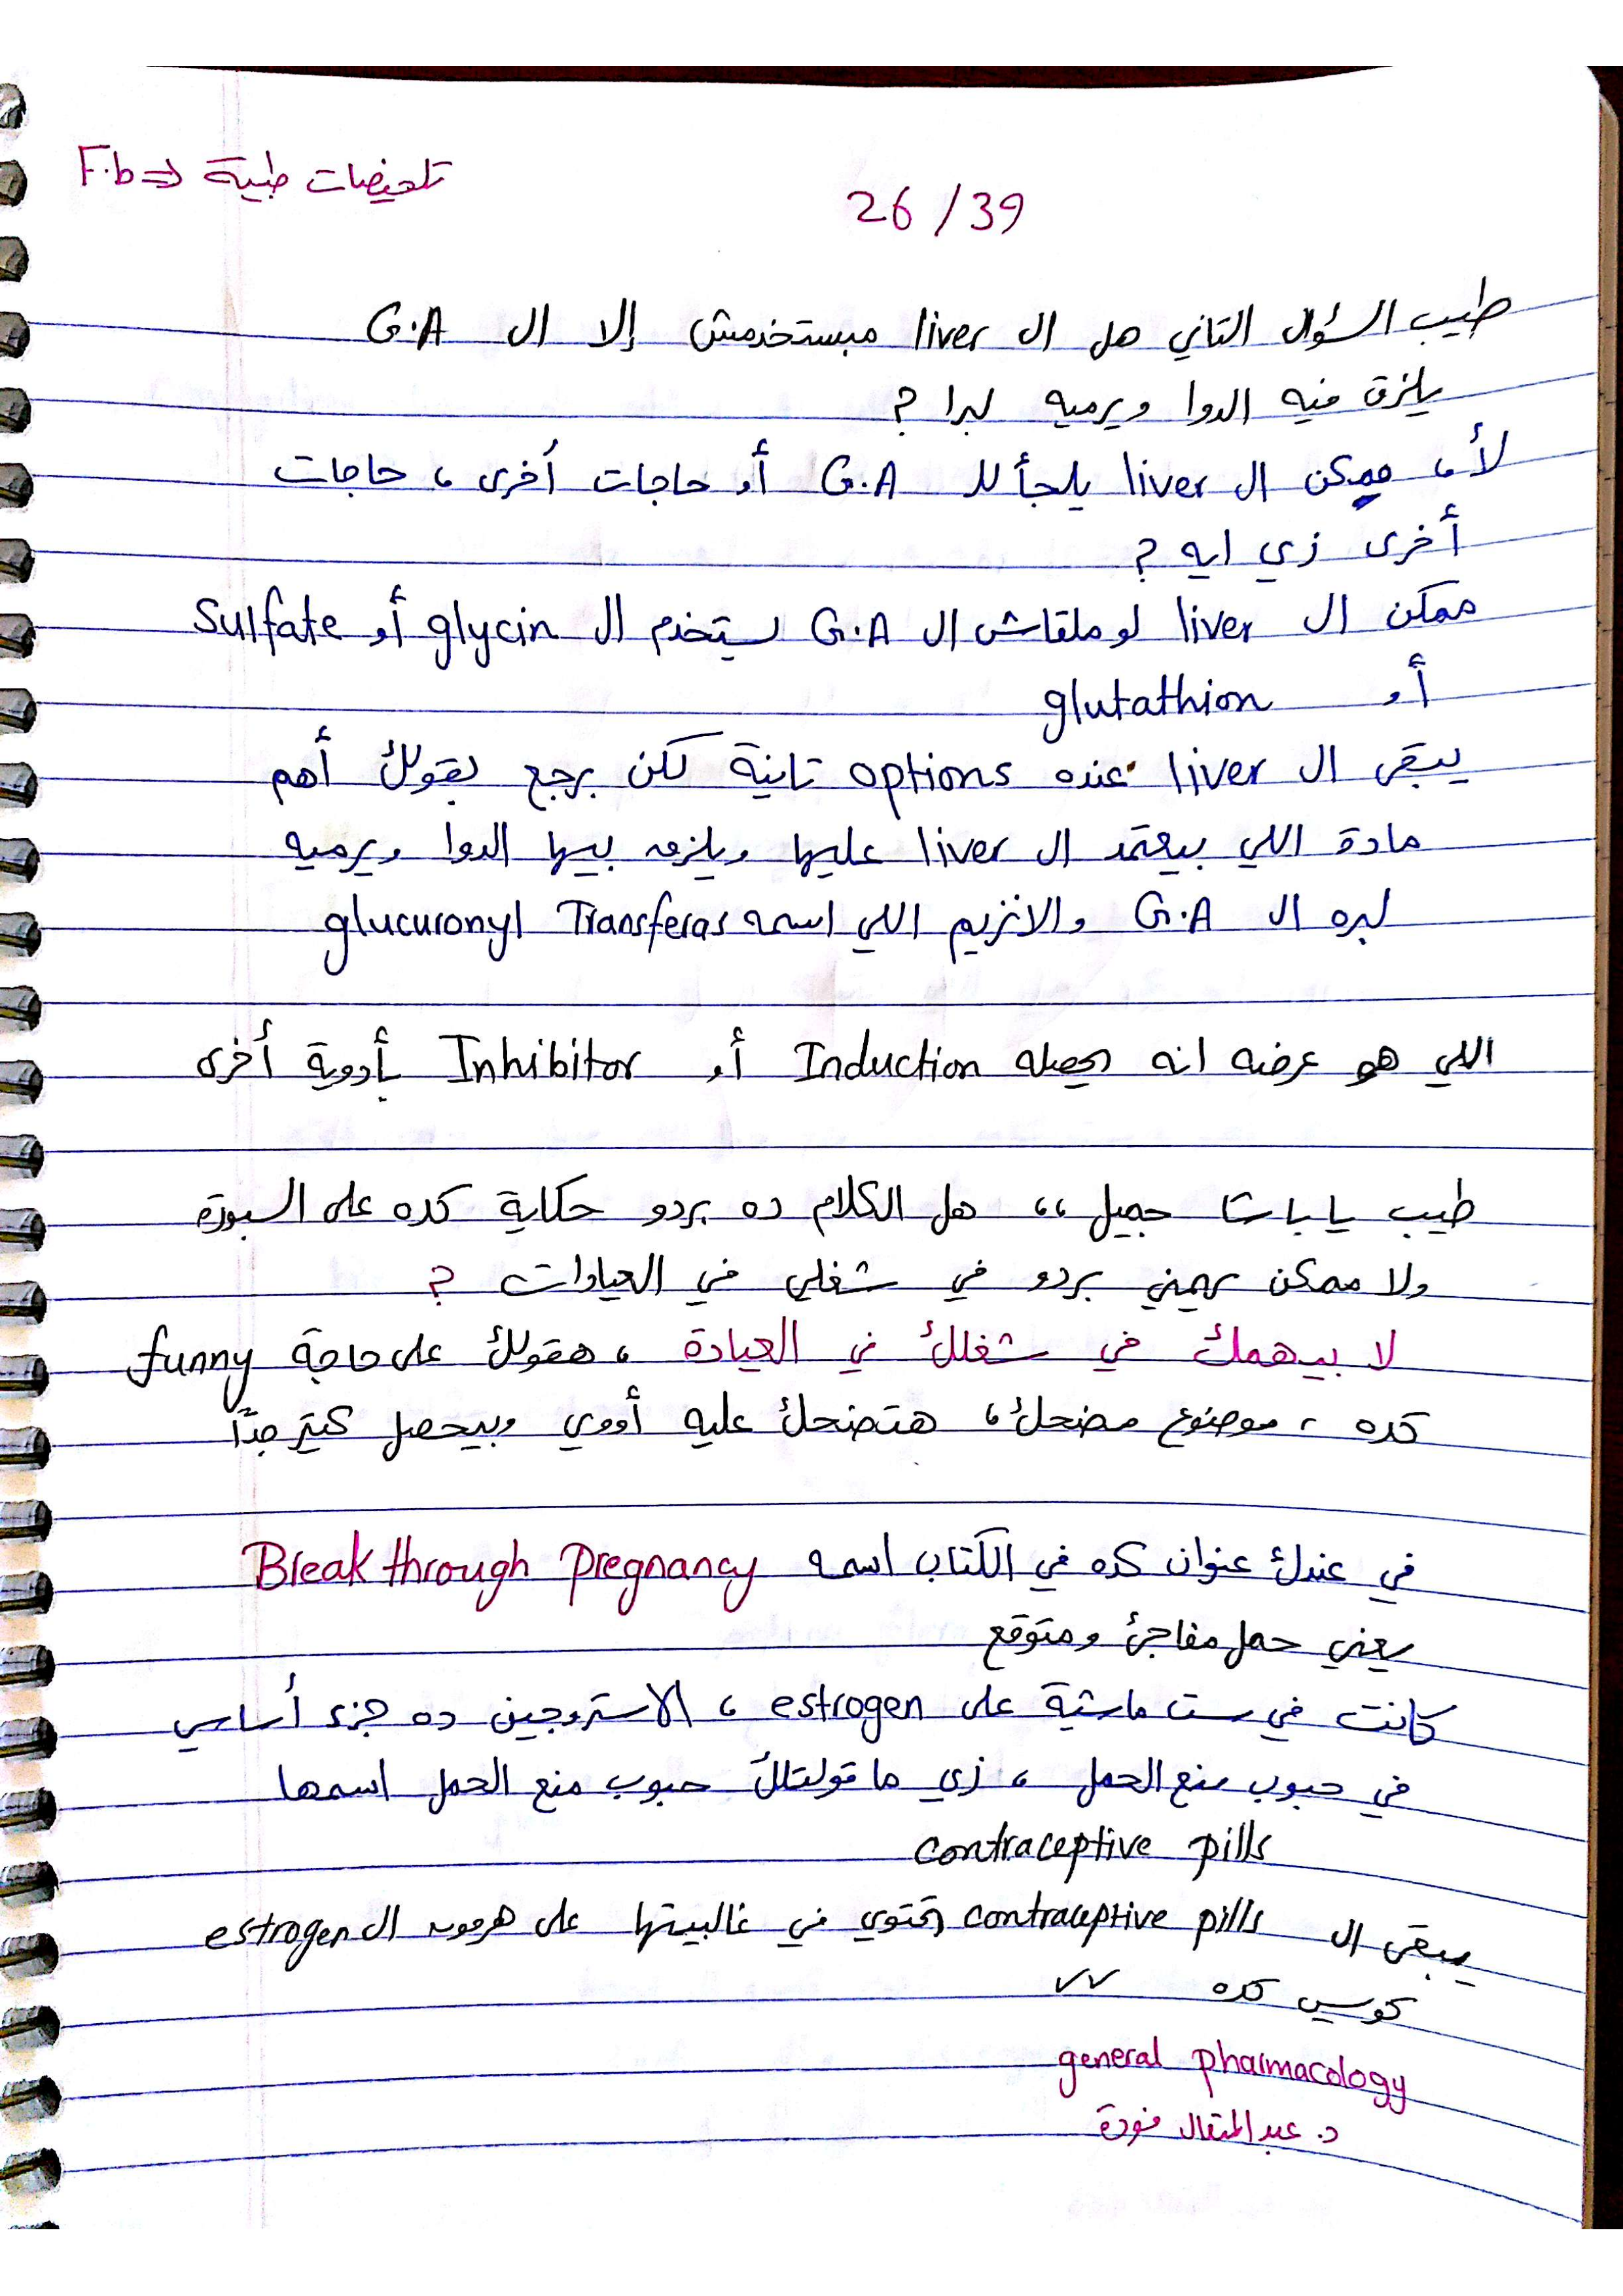 تلخيصات طبية => F.b
26/39
طيب السؤال التاني هل ال liver مبيستخدمش إلا ال G.A
يلزق فيه الدوا ويرميه لبرا ?
لأ، ممكن ال liver يلجأ لل G.A أو حاجات أخرى، حاجات
أخرى زي ايه ?
ممكن ال liver لو ملقاش ال G.A يستخدم ال glycin أو Sulfate
أو glutathion
يبقى ال liver عنده options تانية لكن برجع بقولك أهم
مادة اللي بيعتمد ال liver عليها ويلزق بيها الدوا ويرميه
لبره ال G.A والانزيم اللي اسمه glucuronyl Transferas
اللي هو عرضه انه يحصله Induction أو Inhibitor بأدوية أخرى
طيب يا باشا جميل،، هل الكلام ده بردو حكاية كده على السبورة
ولا ممكن يهمني بردو في شغلي في العيادات ?
لا بيهمك في شغلك في العيادة، هقولك على حاجة funny
كده، موضوع مضحك، هتضحك عليه أووي وبيحصل كتير جدًا
في عندك عنوان كده في الكتاب اسمه Breakthrough pregnancy
يعني حمل مفاجئ ومتوقع
كانت في ست ماشية على estrogen، الاستروجين ده جزء أساسي
في حبوب منع الحمل، زي ما قولتلك حبوب منع الحمل اسمها
contraceptive pills
يبقى ال contraceptive pills بتحتوي في غالبيتها على هرمون ال estrogen
كويس كده ✓✓
general pharmacology
د. عبد المتعال فودة